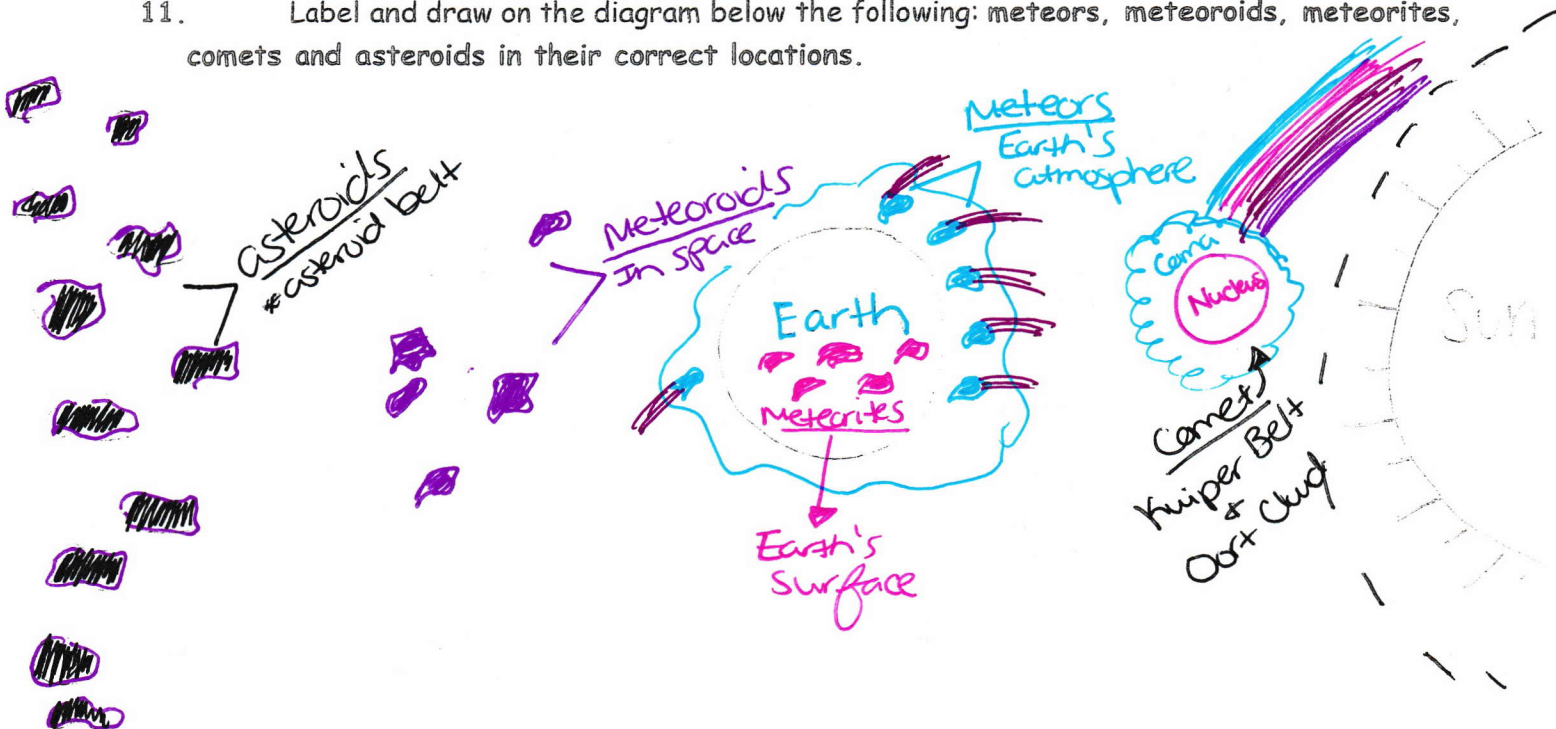 11. Label and draw on the diagram below the following: meteors, meteoroids, meteorites,
comets and asteroids in their correct locations.
asteroids
*asteroid belt
Meteoroids
In space
Meteors
Earth's
atmosphere
Earth
Meteorites
Earth's
Surface
Coma
Nucleus
Comets
Kuiper Belt
&
Oort Cloud
Sun